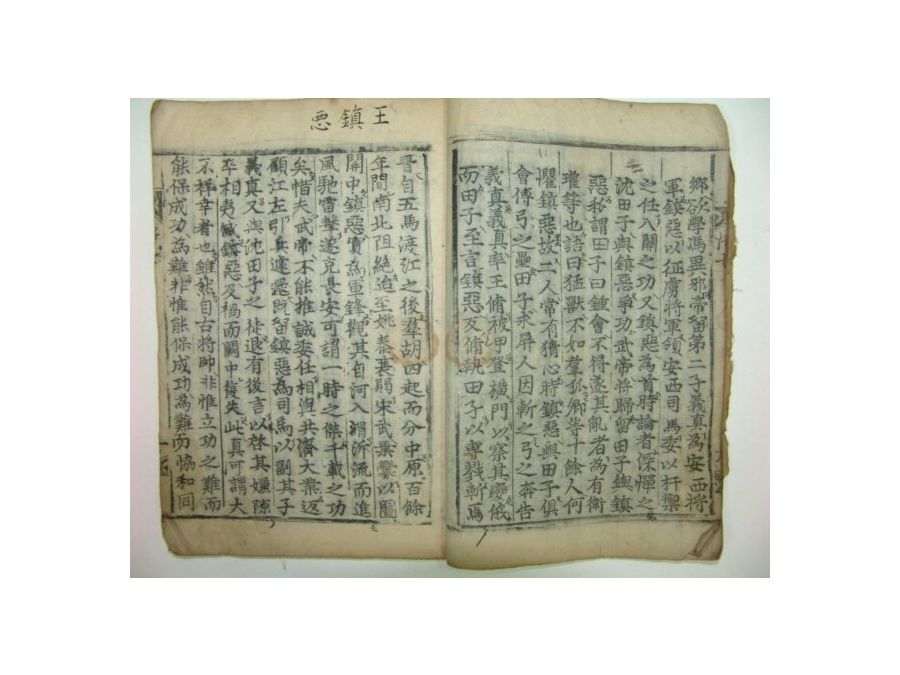 鄉欲學馮異邪帝留第二子義真爲安西將
軍鎮惡以征虜將軍領安西司馬委以扞禦
之任入關之功又鎮惡爲首時論者深憚之
沈田子與鎮惡爭功武帝將歸留田子與鎮
惡私謂田子曰鍾會不得遂其亂者爲有衛
瓘等也語曰猛獸不如羣狐卿等十餘人何
懼鎮惡故二人常有猜心時鎮惡與田子俱
會傳弘之壘田子求屏人因斬之弘之奔告
義真義真率王脩被甲登橫門以察其變俄
而田子至言鎮惡反脩執田子以專戮斬焉
王鎮惡
晉自五馬渡江之後羣胡四起而分中原百餘
年間南北阻絶迨至姚秦衰弱宋武乘釁以圖
開中鎮惡實爲軍鋒觀其自河入渭泝流而進
風馳雷擊遂克長安可謂一時之傑千載之功
矣惜夫武帝不能推誠委任相與共濟大業返
顧江左引兵遽還既留鎮惡爲司馬以副其子
義真又與沈田子之徒退有後言以啓其嫌隙
卒相夷滅鎮惡及禍而關中復失此真可謂大
不祥幸者也雖然自古將帥非惟立功之難而
能保成功爲難非惟能保成功爲難而恊和同